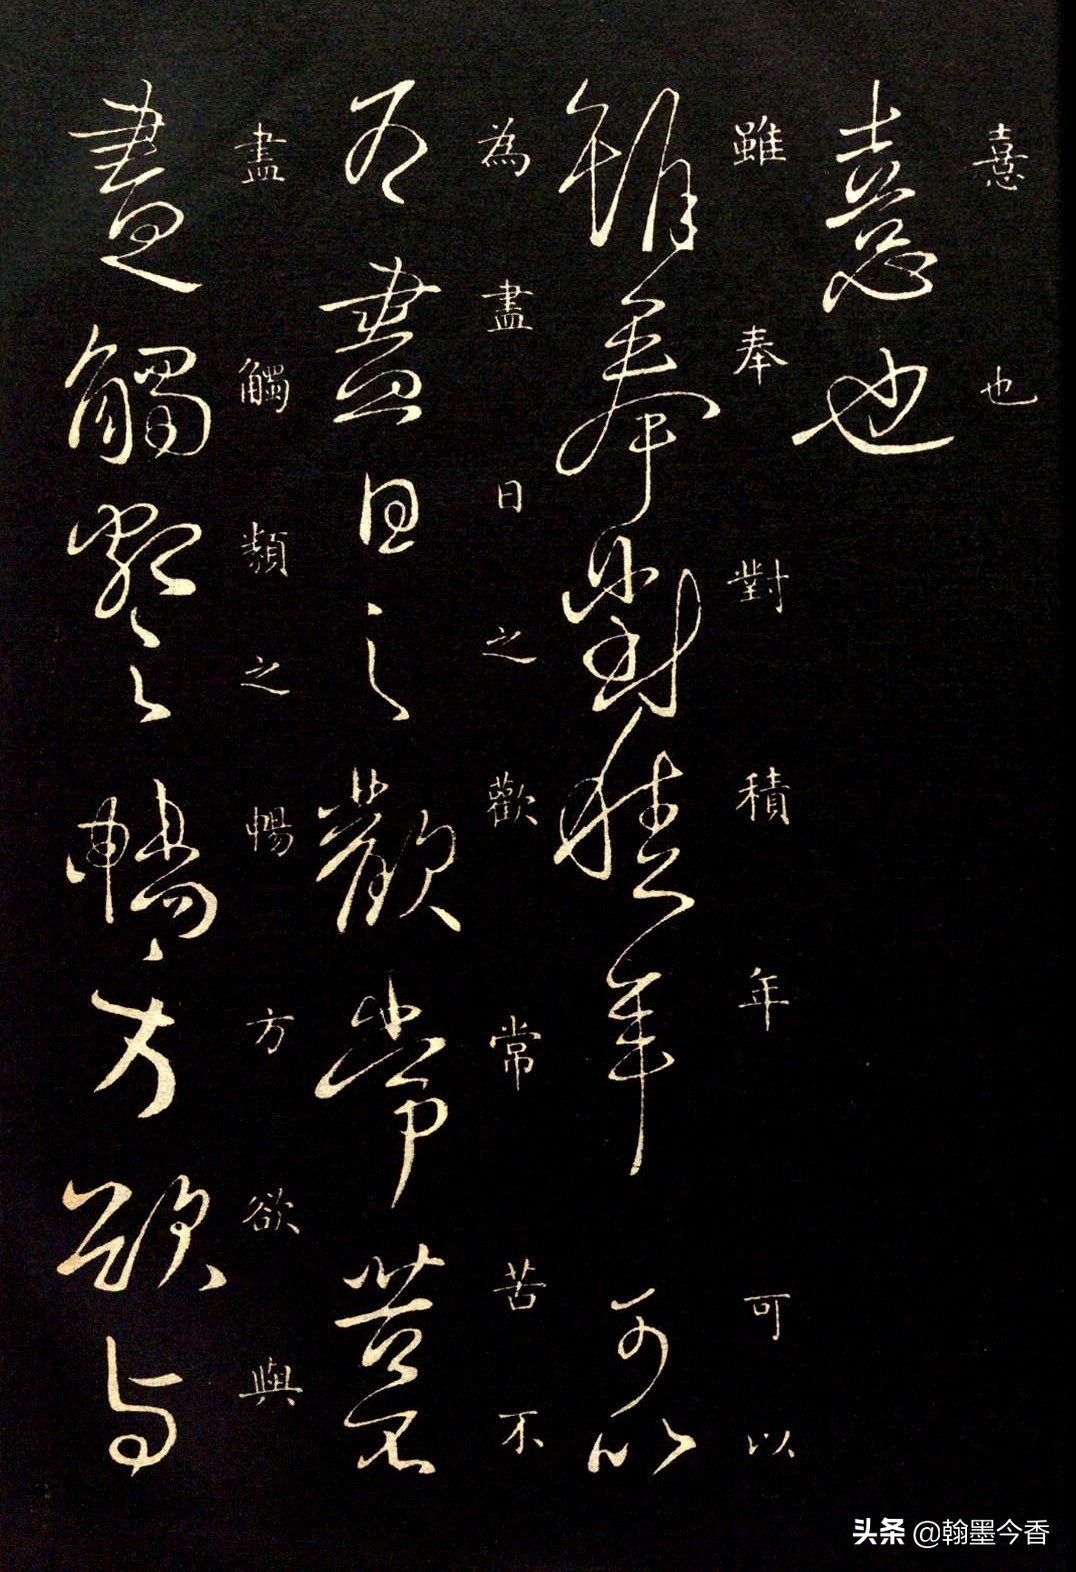 憙也
憙也
雖奉對積年可以
雖奉對積年可以
為盡日之歡常苦不
為盡日之歡常苦不
盡觸類之暢方欲與
盡觸類之暢方欲与
头条 @翰墨今香